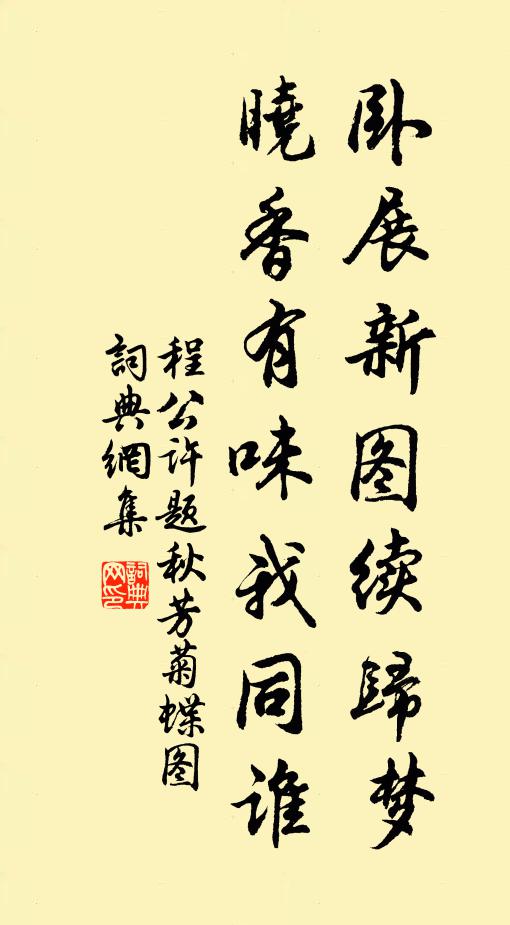 卧展新图续歸梦
曉香有味我同谁
程公许题秋芳菊蝶图
詞典網集
詞典网印